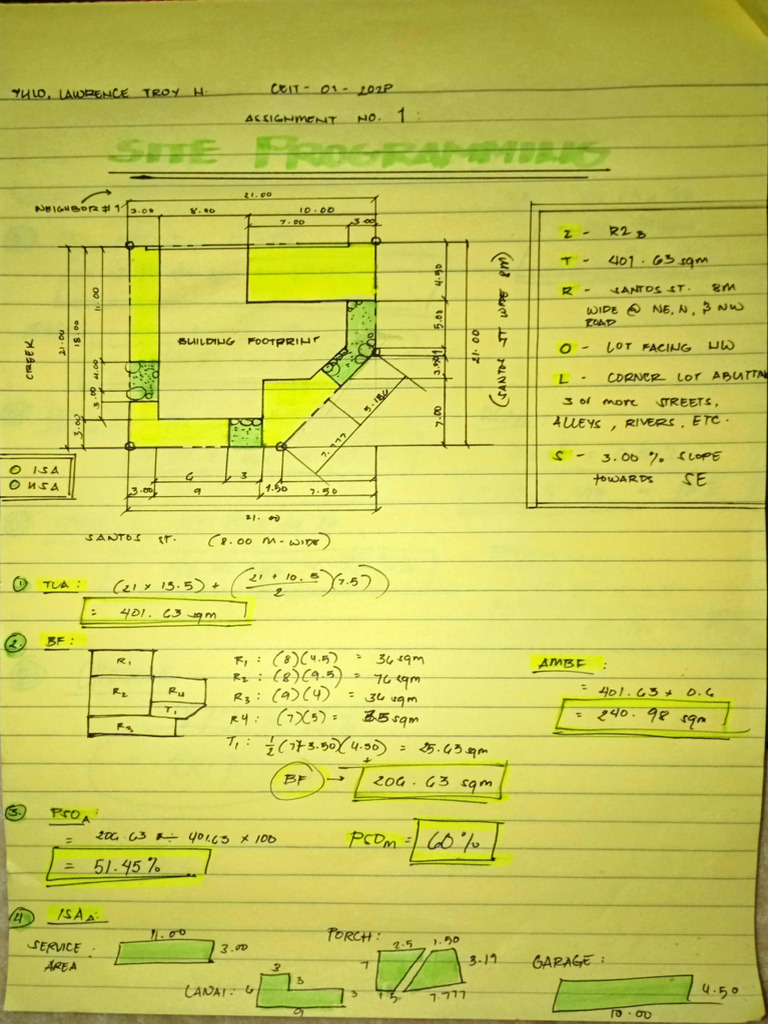 YULO, LAWRENCE TROY H. CEIT - 01 - 202P
ASSIGNMENT NO. 1
SITE PROGRAMMING
NEIGHBOR #1
21.00
3.00 8.00 10.00
7.00 3.00
CREEK
21.00
18.00
11.00
4.00
3.00
3.00
BUILDING FOOTPRINT
4.50
5.00
7.00
21.00
(SANTOS ST WIDE 8M)
5.186
7.777
6 3
3.00 9 1.50 7.50
21.00
ISA
USA
SANTOS ST. (8.00 M-WIDE)
Z - R2B
T - 401.63 sqm
R - SANTOS ST. 8M
WIDE @ NE, N, & NW
ROAD
O - LOT FACING NW
L CORNER LOT ABUTTIN
3 of more STREETS,
ALLEYS, RIVERS, ETC.
S - 3.00 % SLOPE
TOWARDS SE
① TLA: (21 x 13.5) + (21 + 10.5 / 2)(7.5)
= 401.63 sqm
2. BF:
R1
R2 R4
T1
R3
R1 : (8)(4.5) = 36 sqm
R2 : (8)(9.5) = 76 sqm
R3 : (9)(4) = 36 sqm
R4 : (7)(5) = 35 sqm
T1 : ½(7+3.50)(4.50) = 25.63 sqm
BF → 206.63 sqm
AMBF :
= 401.63 x 0.6
= 240.98 sqm
3. PSOA:
= 206.63 ÷ 401.63 x 100
= 51.45%
PSOm = 60%
4 ISAA:
SERVICE AREA : 11.00 3.00
LANAI: 6 3 3 3 9
PORCH: 2.5 1.50 7 3.19 1.5 7.777
GARAGE : 4.50 10.00